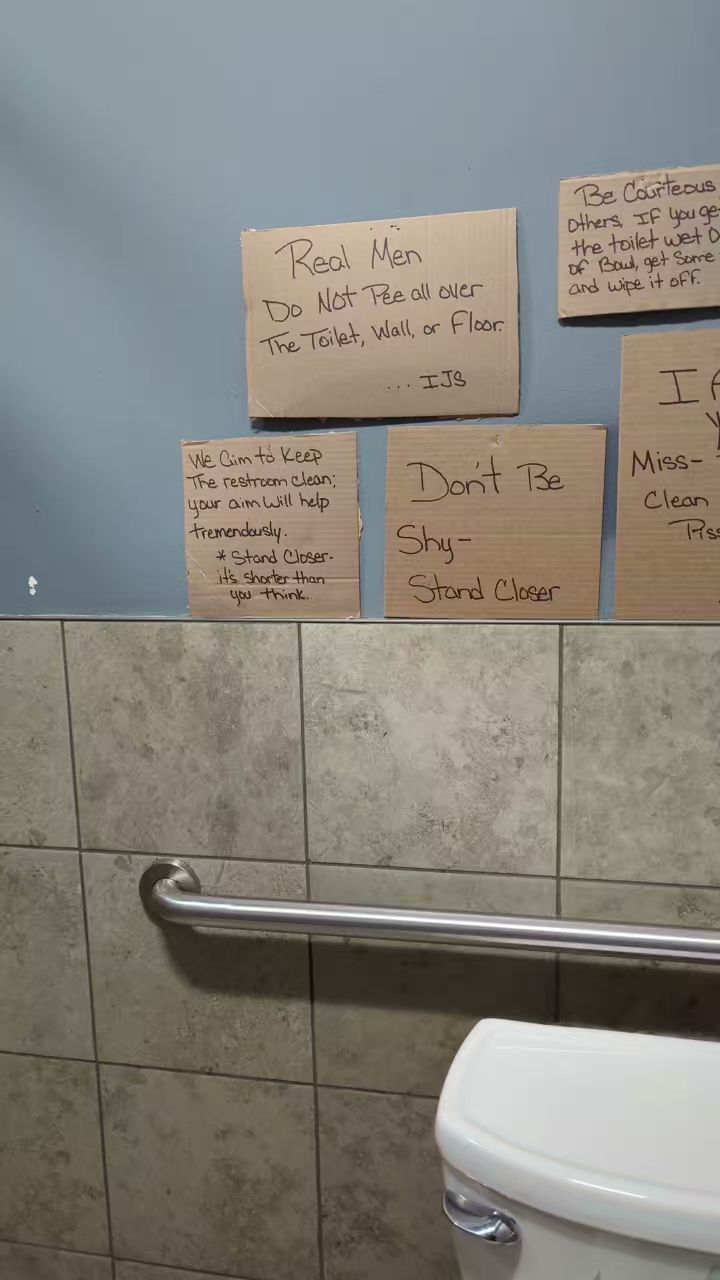 Real Men
Do Not Pee all over
The Toilet, Wall, or Floor.
... IJS
Be Courteous
others, IF you
the toilet wet
of Bowl, get Some
and wipe it off.
We aim to Keep
The restroom clean;
your aim will help
tremendously.
* Stand Closer-
it's shorter than
you think.
Don't Be
Shy-
Stand Closer
I
Miss-
Clean